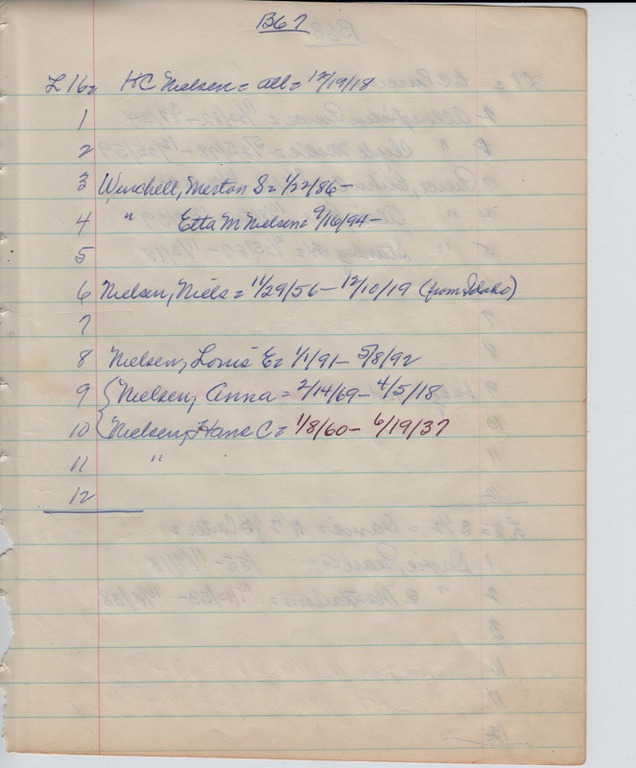 B67
L 16= HC Nielsen = all = 12/19/18
1
2
3 Winchell, Merton S = 1/22/86 -
4 " Etta M Nielsen = 9/16/94 -
5
6 Nielsen, Niels = 11/29/56 - 12/10/19 (from Idaho)
7
8 Nielsen, Louis E = 1/1/91 - 5/8/92
9 Nielsen, Anna = 2/14/69 - 4/5/18
10 Nielsen, Hans C = 1/8/60 - 6/19/37
11 "
12